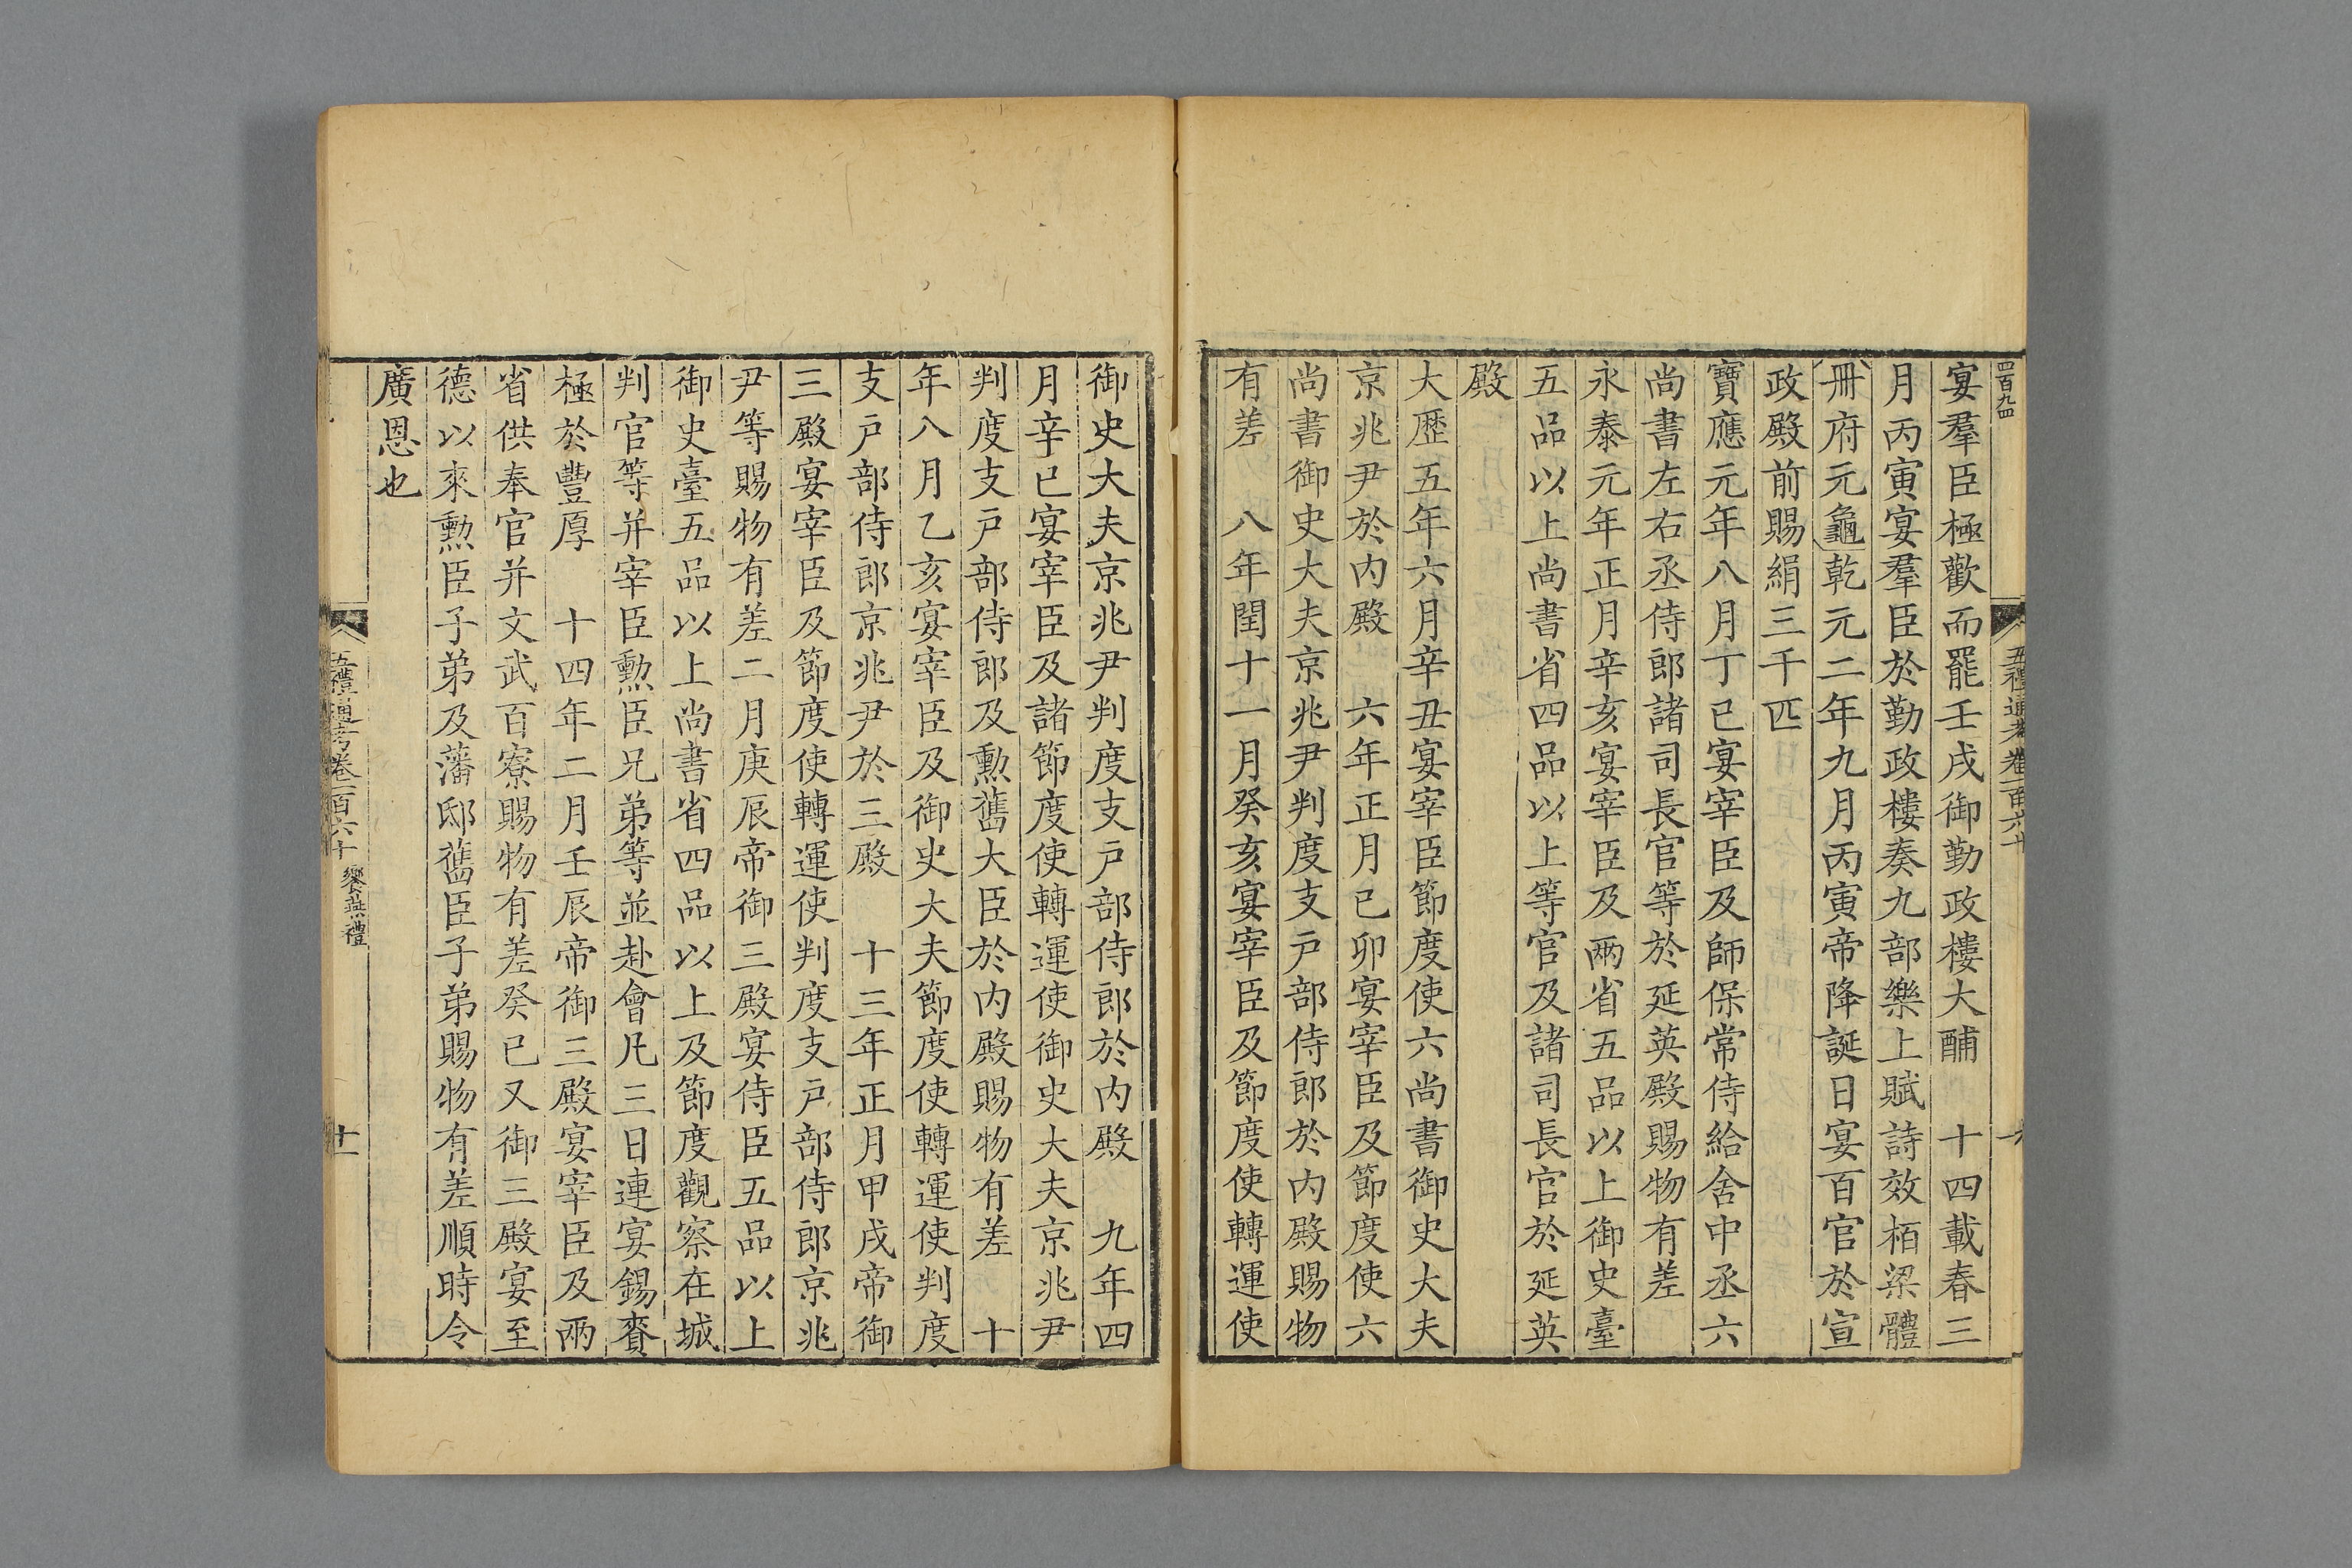 四百九四
五禮通考卷一百六十
宴羣臣極歡而罷壬戌御勤政樓大酺　十四載春三
月丙寅宴羣臣於勤政樓奏九部樂上賦詩效栢梁體
冊府元龜乾元二年九月丙寅帝降誕日宴百官於宣
政殿前賜絹三千匹
寶應元年八月丁巳宴宰臣及師保常侍給舍中丞六
尚書左右丞侍郎諸司長官等於延英殿賜物有差
永泰元年正月辛亥宴宰臣及兩省五品以上御史臺
五品以上尚書省四品以上等官及諸司長官於延英
殿
大歷五年六月辛丑宴宰臣節度使六尚書御史大夫
京兆尹於內殿　六年正月己卯宴宰臣及節度使六
尚書御史大夫京兆尹判度支戶部侍郎於內殿賜物
有差　八年閏十一月癸亥宴宰臣及節度使轉運使
御史大夫京兆尹判度支戶部侍郎於內殿　九年四
月辛巳宴宰臣及諸節度使轉運使御史大夫京兆尹
判度支戶部侍郎及勲舊大臣於內殿賜物有差　十
年八月乙亥宴宰臣及御史大夫節度使轉運使判度
支戶部侍郎京兆尹於三殿　十三年正月甲戌帝御
三殿宴宰臣及節度使轉運使判度支戶部侍郎京兆
尹等賜物有差二月庚辰帝御三殿宴侍臣五品以上
御史臺五品以上尚書省四品以上及節度觀察在城
判官等并宰臣勲臣兄弟等並赴會凡三日連宴錫賚
極於豐厚　十四年二月壬辰帝御三殿宴宰臣及兩
省供奉官并文武百寮賜物有差癸巳又御三殿宴至
德以來勲臣子弟及藩邸舊臣子弟賜物有差順時令
廣恩也
五禮通考卷一百六十 饗燕禮 十一